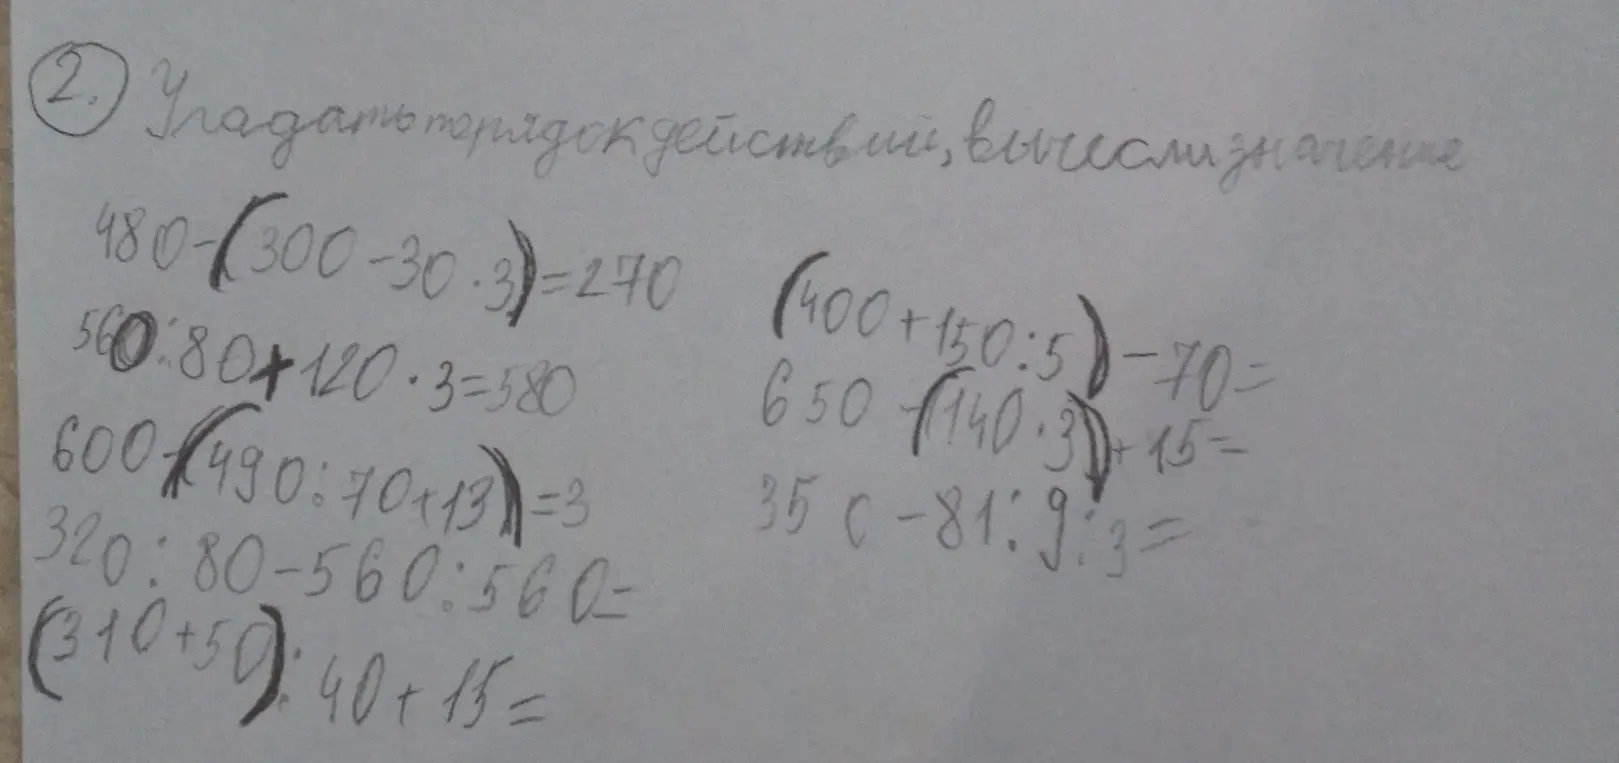 2. Угадать порядок действий, вычесли значение
480-(300-30·3)=270
560:80+120·3=580
600-(490:70+13)=3
320:80-560:560=
(310+50):40+15=
(400+150:5)-70=
650-(140·3)+15=
350-81:9:3=